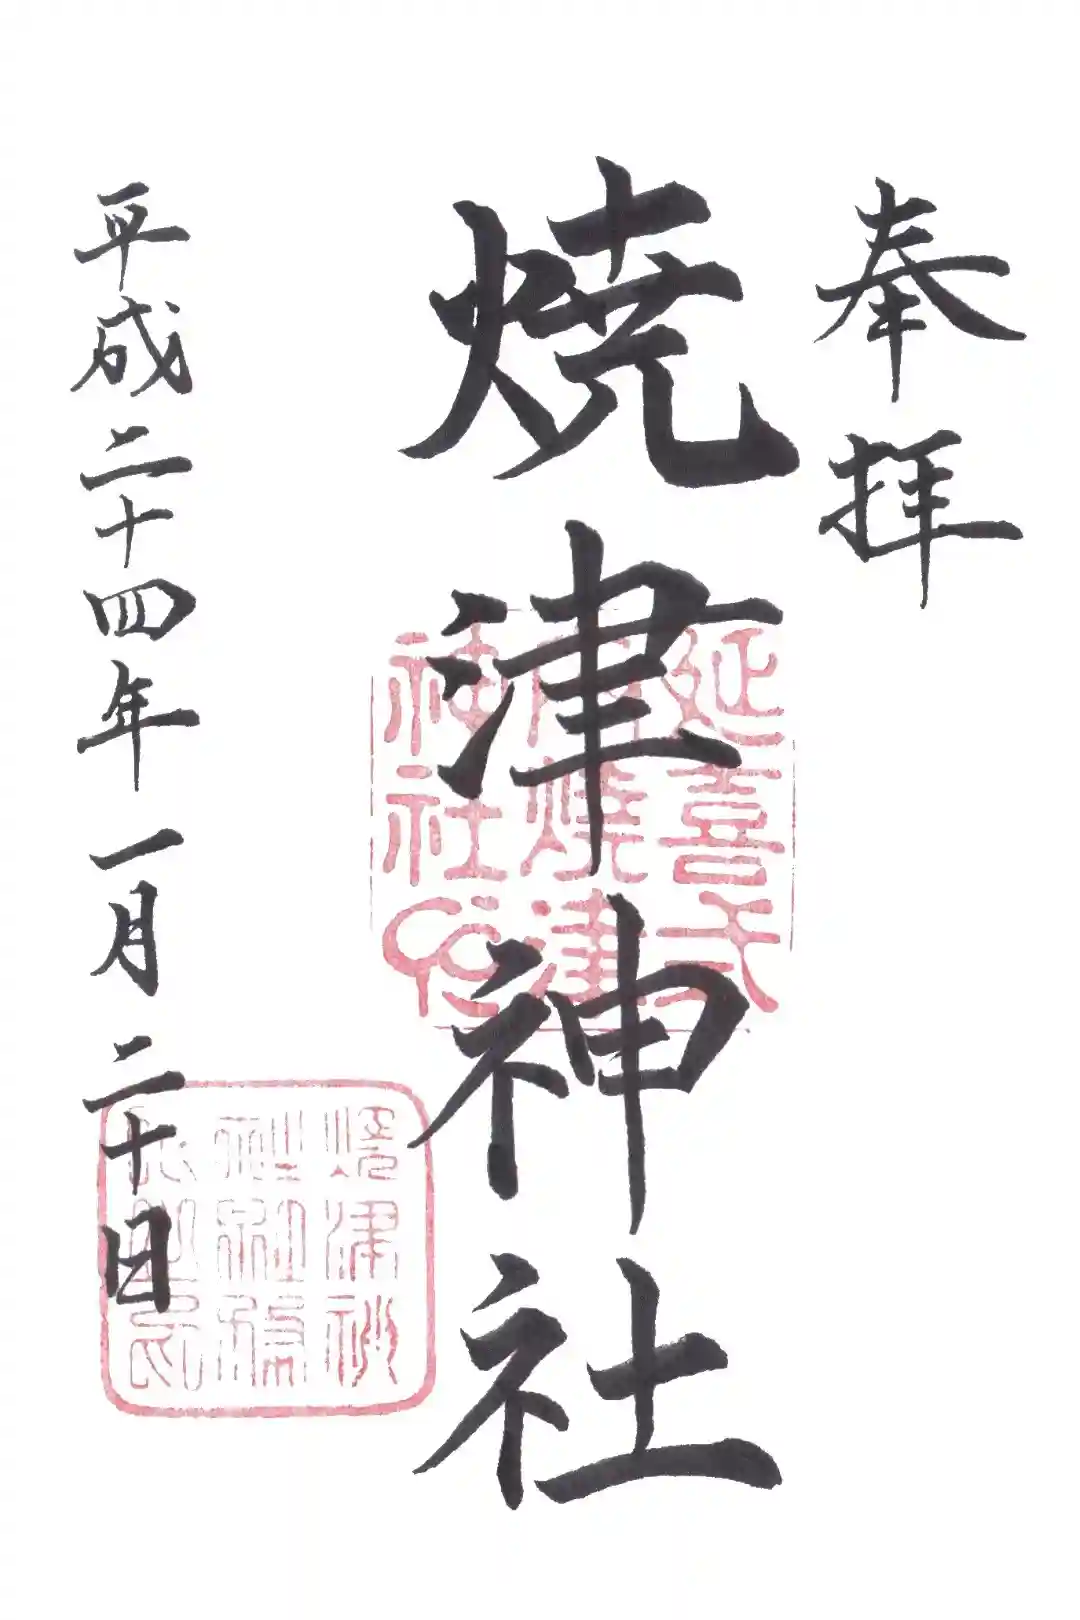 奉拝
焼津神社
平成二十四年一月二十日
延喜式
内焼津
神社
焼津神
社社務
所之印